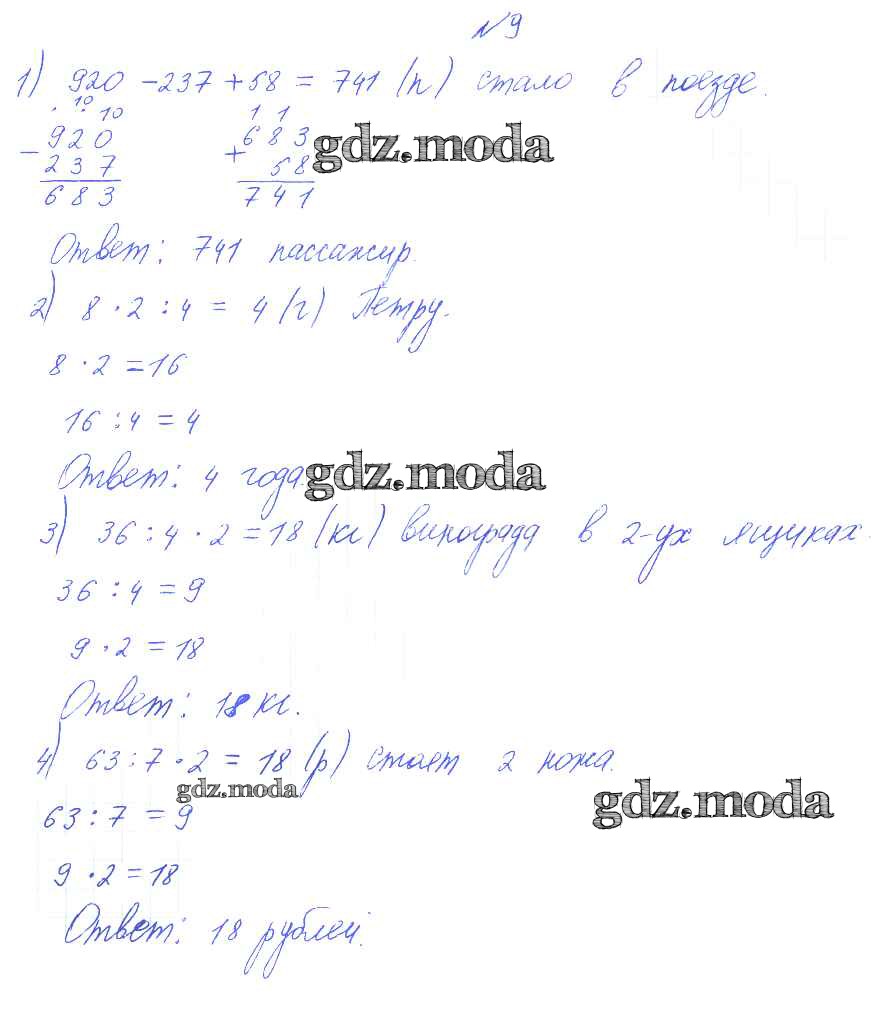 №9
1) 920 - 237 + 58 = 741 (п) стало в поезде.
. 10 10 1 1
- 920 + 683 gdz.moda
237 58
683 741
Ответ: 741 пассажир.
2) 8 · 2 : 4 = 4 (г) Петру.
8 · 2 = 16
16 : 4 = 4
Ответ: 4 года. gdz.moda
3) 36 : 4 · 2 = 18 (кг) винограда в 2-ух ящиках.
36 : 4 = 9
9 · 2 = 18
Ответ: 18 кг.
4) 63 : 7 · 2 = 18 (р) стоят 2 ножа.
gdz.moda
63 : 7 = 9 gdz.moda
9 · 2 = 18
Ответ: 18 рублей.